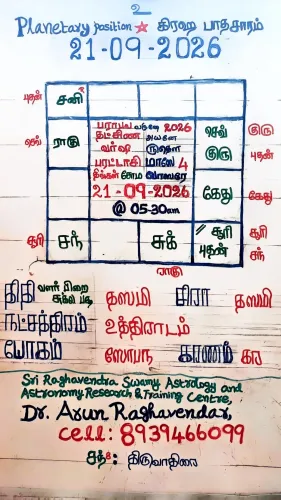 உ
Planetary position ☆ கிரஹ பாதசாரம்
21-09-2026
புதன் சனி
செவ் ராகு செவ் குரு குரு புதன்
பராபவ வருஷ 2026
தட்சிண அயனம்
வர்ஷ ருதௌ
புரட்டாசி மாஸம் 4
திங்கள் சோம வாஸரம்
21-09-2026
@ 05-30am
கேது கேது
சூரி சந் சுக் சூரி புதன் சூரி சந்
ராகு
திதி வளர் பிறை சுக்ல பக்ஷ தஸமி சிரா தஸமி
நட்சத்திரம் உத்திராடம்
யோகம் ஸோபந கரணம் கர
Sri Raghavendra Swamy Astrology and
Astronomy, Research & Training Centre,
Dr. Arun Raghavendar,
cell: 8939466099
சந்: திருவாதிரை